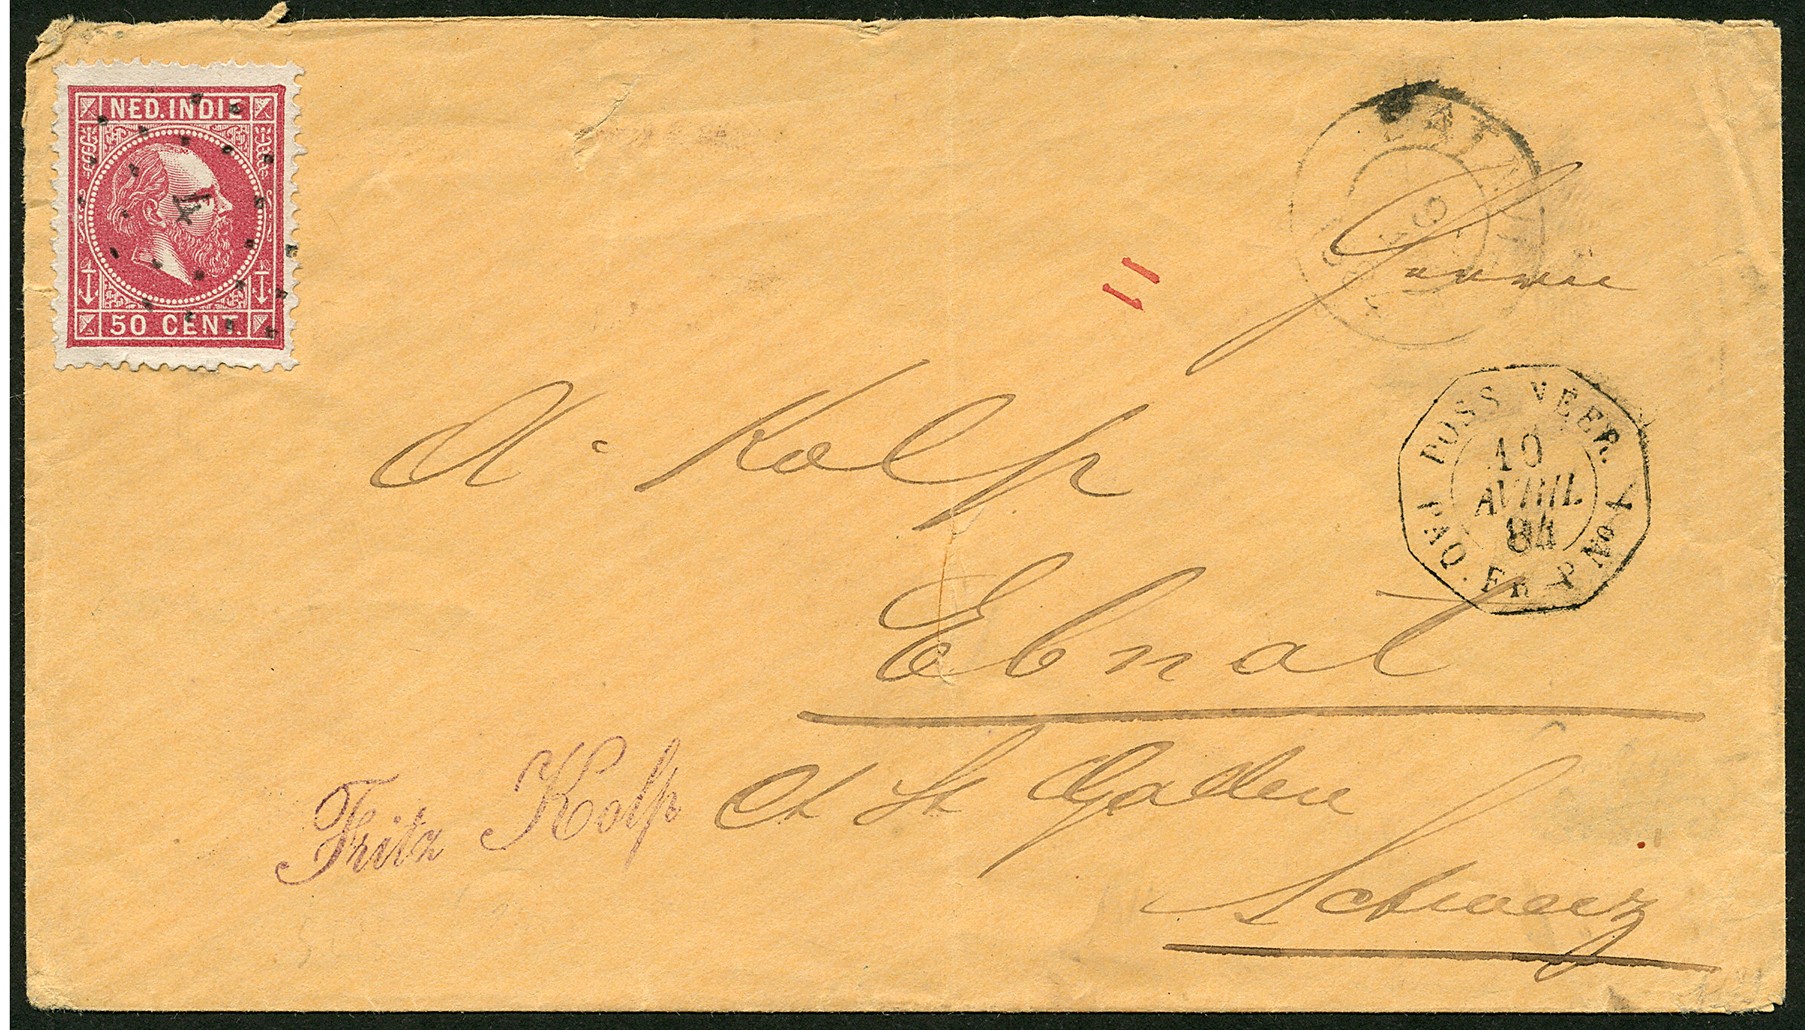 NED. INDIE
4
50 CENT.
11
POSS. NEER. Y
PAQ. FR. P No
10
AVRIL
84
A. Kolp
Ebnat
Ct St Gallen
Schweiz
Fritz Kolp